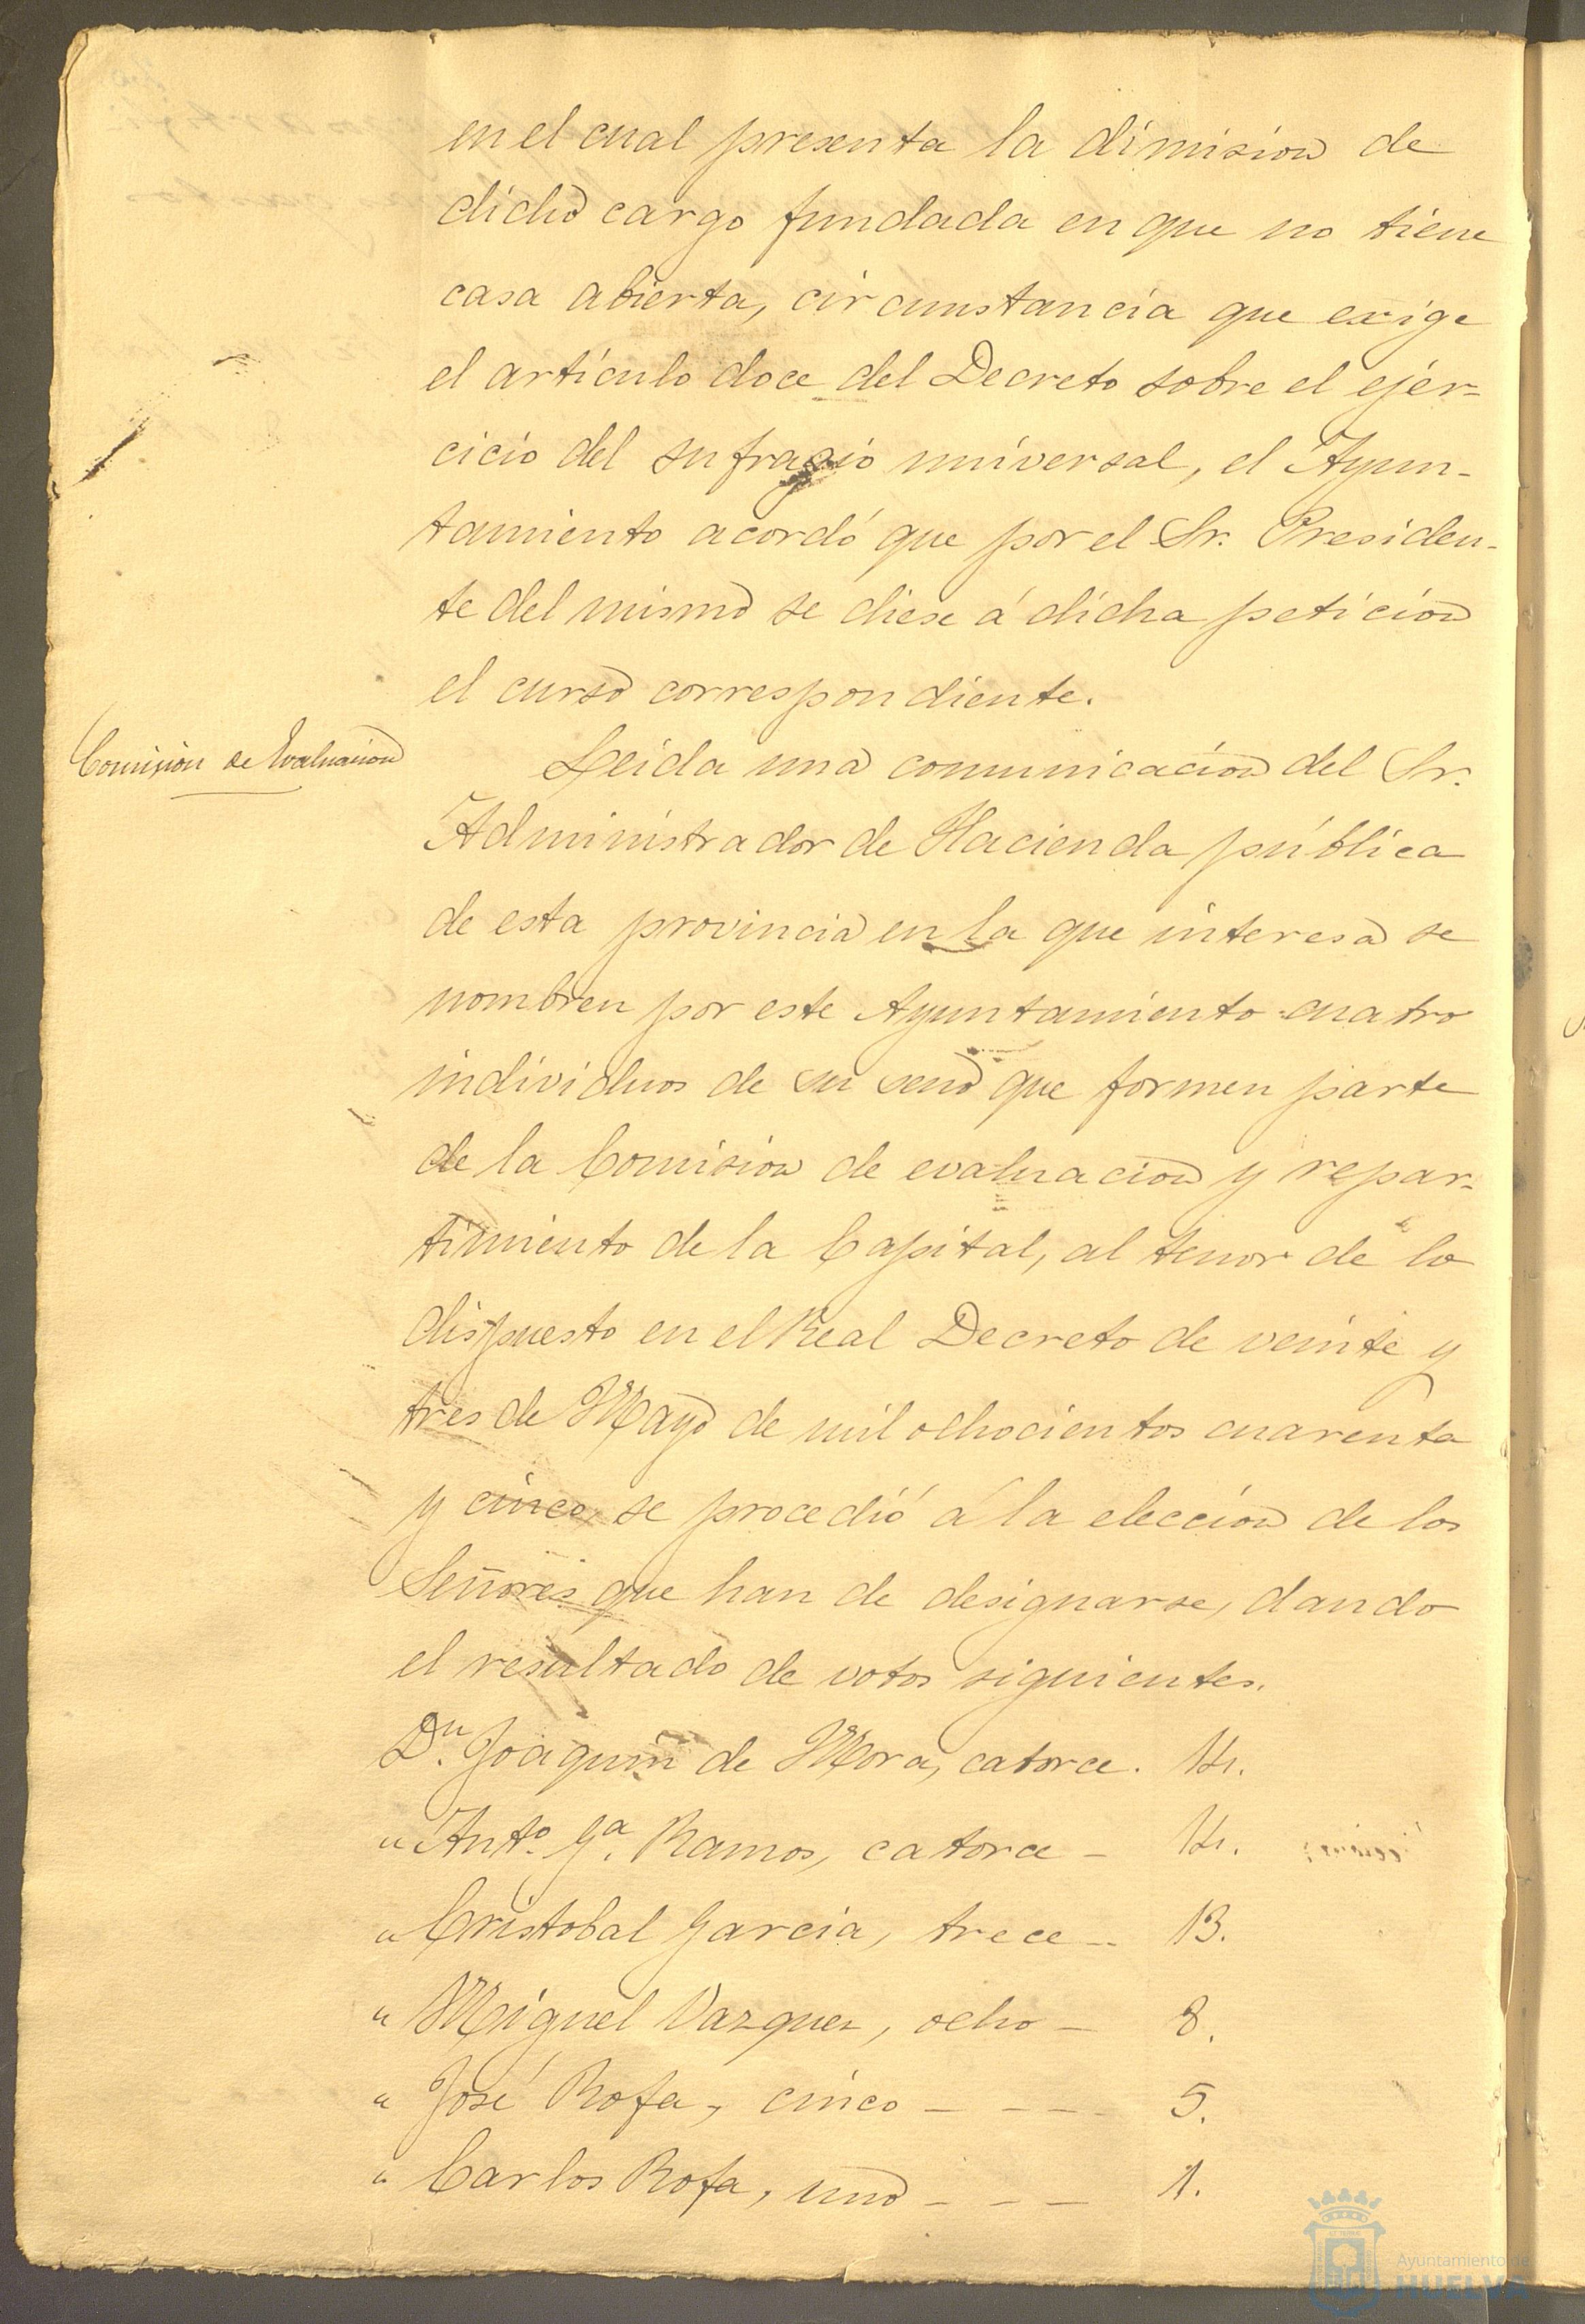 en el cual presenta la dimision de
dicho cargo fundada en que no tiene
casa abierta, circunstancia que exige
el artículo doce del Decreto sobre el ejer-
cicio del sufragio universal, el Ayun-
tamiento acordó que por el Sr. Presiden-
te del mismo se diese á dicha peticion
el curso correspondiente.
Comision de Evaluacion
Leida una comunicacion del Sr.
Administrador de Hacienda pública
de esta provincia en la que interesa se
nombren por este Ayuntamiento cuatro
individuos de su seno que formen parte
de la Comision de evaluacion y repar-
timiento de la Capital, al tenor de lo
dispuesto en el Real Decreto de veinte y
tres de Mayo de mil ochocientos cuarenta
y cinco, se procedió á la eleccion de los
Señores que han de designarse, dando
el resultado de votos siguientes.
Dn. Joaquin de Mora, catorce. 14.
" Anto. Ga. Ramos, catorce - 14.
" Cristobal Garcia, trece - 13.
" Miguel Vazquez, ocho - 8.
" José Rofa, cinco - - - 5.
" Carlos Rofa, uno - - - 1.
Ayuntamiento de
HUELVA